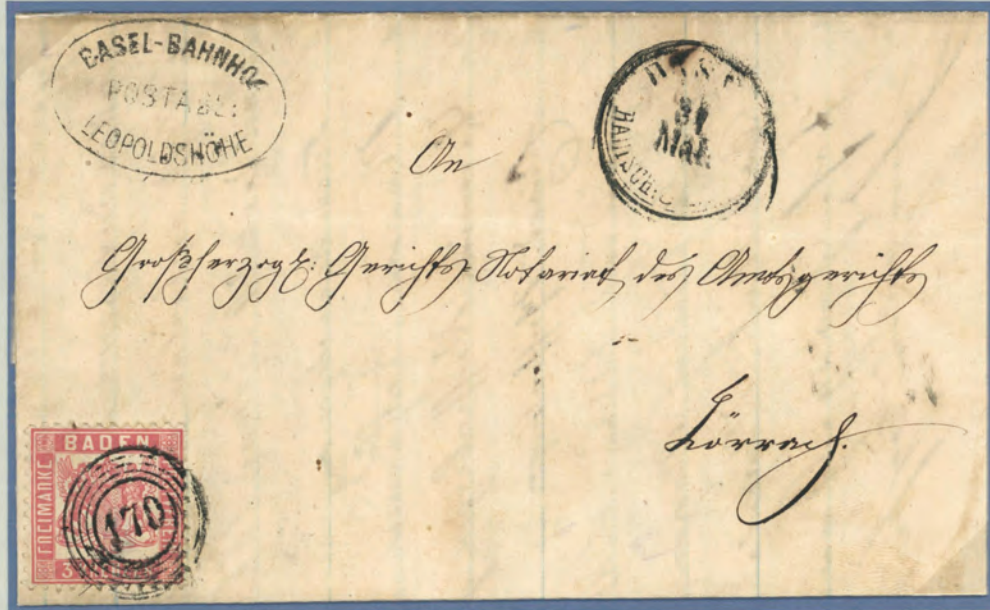 BASEL-BAHNHOF
POSTABL:
LEOPOLDSHÖHE
31
MAR
An
Großherzogl: Gerichts Notariat des Amtsgerichts
Lörrach.
BADEN
FREIMARKE
3
170